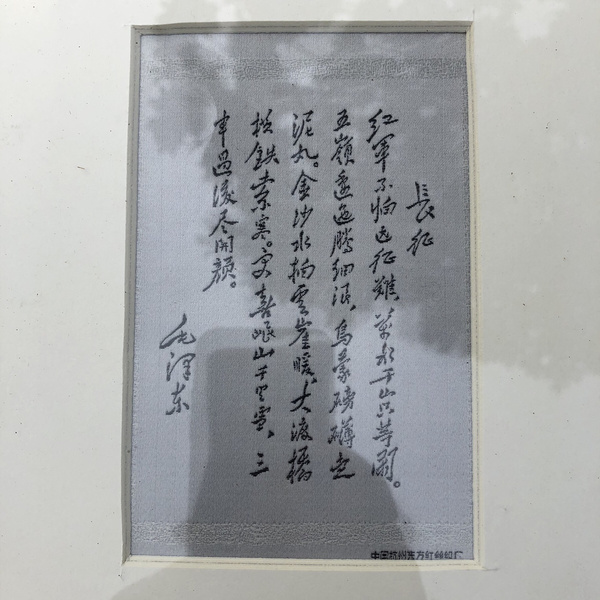 長征
红軍不怕远征難、萬水千山只等閑。
五嶺逶迤騰细浪、烏蒙磅礴走
泥丸。金沙水拍雲崖暖、大渡橋
横鉄索寒。更喜岷山千里雪、三
軍過後尽開顔。
毛澤东
中国杭州东方红丝织厂